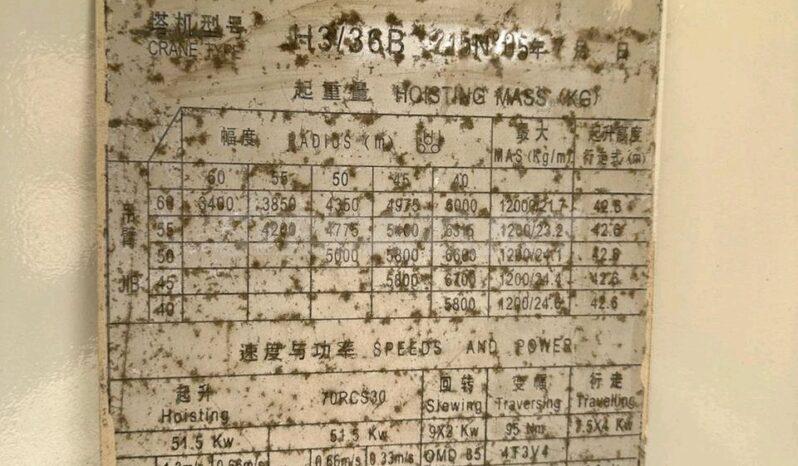 塔机型号
CRANE TYPE H3/36B 215N 05年 月 日
起重量 HOISTING MASS (KG)
幅度 RADIUS (m) 最大 MAS(Kg/m) 起升高度 行走式(m)
吊臂 JIB
60 55 50 45 40
60 3400 3850 4350 4975 6000 12000/21.7 42.6
55 4200 4775 5400 6315 1200/23.2 42.6
50 5000 5800 6600 1200/24.1 42.6
45 5800 6700 1200/24.4 42.6
40 5800 1200/24.6 42.6
速度与功率 SPEEDS AND POWER
起升 70RCS30 回转 变幅 行走
Hoisting Slewing Traversing Travelling
51.5 Kw 51.5 Kw 9X2 Kw 95 Nm 7.5X4 Kw
0.33m/s OMD 85 4T3V4